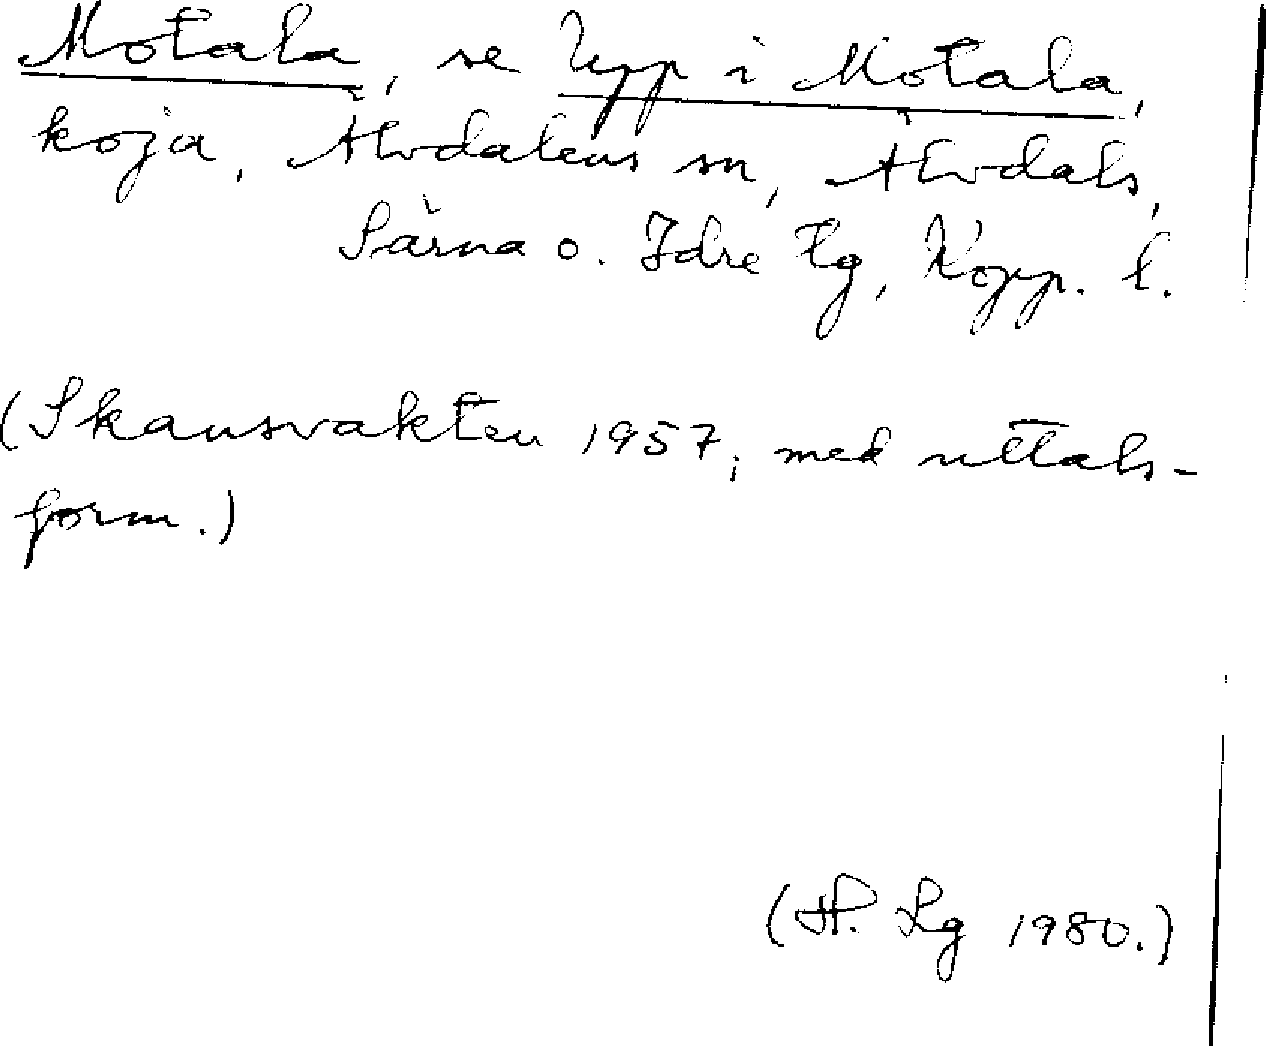 Motala, se Upp i Motala,
koja, Älvdalens sn, Älvdals,
Särna o. Idre tg, Kopp. l.
(Skansvakten 1957, med uttals-
form.)
(H. Lg 1980.)